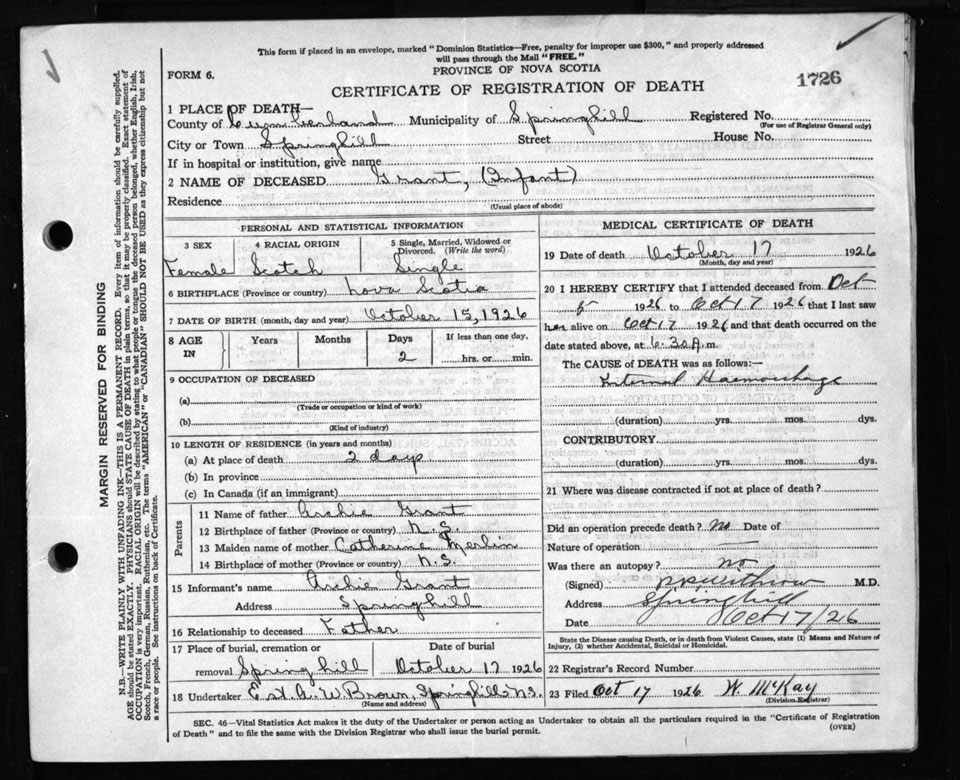 This form if placed in an envelope, marked "Dominion Statistics—Free, penalty for improper use $300," and properly addressed
will pass through the Mail "FREE."
FORM 6.
PROVINCE OF NOVA SCOTIA
1726
CERTIFICATE OF REGISTRATION OF DEATH
1 PLACE OF DEATH—
County of Cumberland Municipality of Springhill Registered No.
(For use of Registrar General only)
City or Town Springhill Street House No.
If in hospital or institution, give name
2 NAME OF DECEASED Grant, (Infant)
Residence
(Usual place of abode)
PERSONAL AND STATISTICAL INFORMATION
3 SEX
Female
4 RACIAL ORIGIN
Scotch
5 Single, Married, Widowed or
Divorced. (Write the word)
Single
6 BIRTHPLACE (Province or country) Nova Scotia
7 DATE OF BIRTH (month, day and year) October 15, 1926
8 AGE
IN
Years
Months
Days
2
If less than one day,
hrs. or min.
9 OCCUPATION OF DECEASED
(a)
(Trade or occupation or kind of work)
(b)
(Kind of industry)
10 LENGTH OF RESIDENCE (in years and months)
(a) At place of death 2 days
(b) In province
(c) In Canada (if an immigrant)
Parents
11 Name of father Archie Grant
12 Birthplace of father (Province or country) N.S.
13 Maiden name of mother Catherine Merlin
14 Birthplace of mother (Province or country) N.S.
15 Informant's name Archie Grant
Address Springhill
16 Relationship to deceased Father
17 Place of burial, cremation or Date of burial
removal Springhill October 17 1926
18 Undertaker A. W. Brown, Springhill N.S.
(Name and address)
MEDICAL CERTIFICATE OF DEATH
19 Date of death October 17 1926
(Month, day and year)
20 I HEREBY CERTIFY that I attended deceased from Oct
1926 to Oct 17 1926 that I last saw
her alive on Oct 17 1926 and that death occurred on
date stated above, at 6.30 A.m.
The CAUSE OF DEATH was as follows:—
Internal Haemorrhage
(duration) yrs. mos. dys.
CONTRIBUTORY
(duration) yrs. mos. dys.
21 Where was disease contracted if not at place of death?
Did an operation precede death? No Date of
Nature of operation —
Was there an autopsy? no
(Signed) M.D.
Address Springhill
Date Oct 17/26
State the Disease causing Death, or in death from Violent Causes, state (1) Means and Nature of
Injury, (2) whether Accidental, Suicidal or Homicidal.
22 Registrar's Record Number
23 Filed Oct 17 1926 W. McKay
(Division Registrar)
SEC. 46—Vital Statistics Act makes it the duty of the Undertaker or person acting as Undertaker to obtain all the particulars required in the "Certificate of Registration
of Death" and to file the same with the Division Registrar who shall issue the burial permit.
(OVER)
MARGIN RESERVED FOR BINDING
N.B.—WRITE PLAINLY WITH UNFADING INK—THIS IS A PERMANENT RECORD. Every item of information should be carefully supplied.
AGE should be stated EXACTLY. PHYSICIANS should STATE CAUSE OF DEATH in plain terms, so that it may be properly classified. Exact statement of
OCCUPATION is very important. RACIAL ORIGIN will be described by stating to what people or tongue the deceased person belonged, whether English, Irish,
Scotch, French, German, Russian, Ruthenian, etc. The terms "AMERICAN" or "CANADIAN" SHOULD NOT BE USED as they express citizenship but not
a race or people. See instructions on back of Certificate.